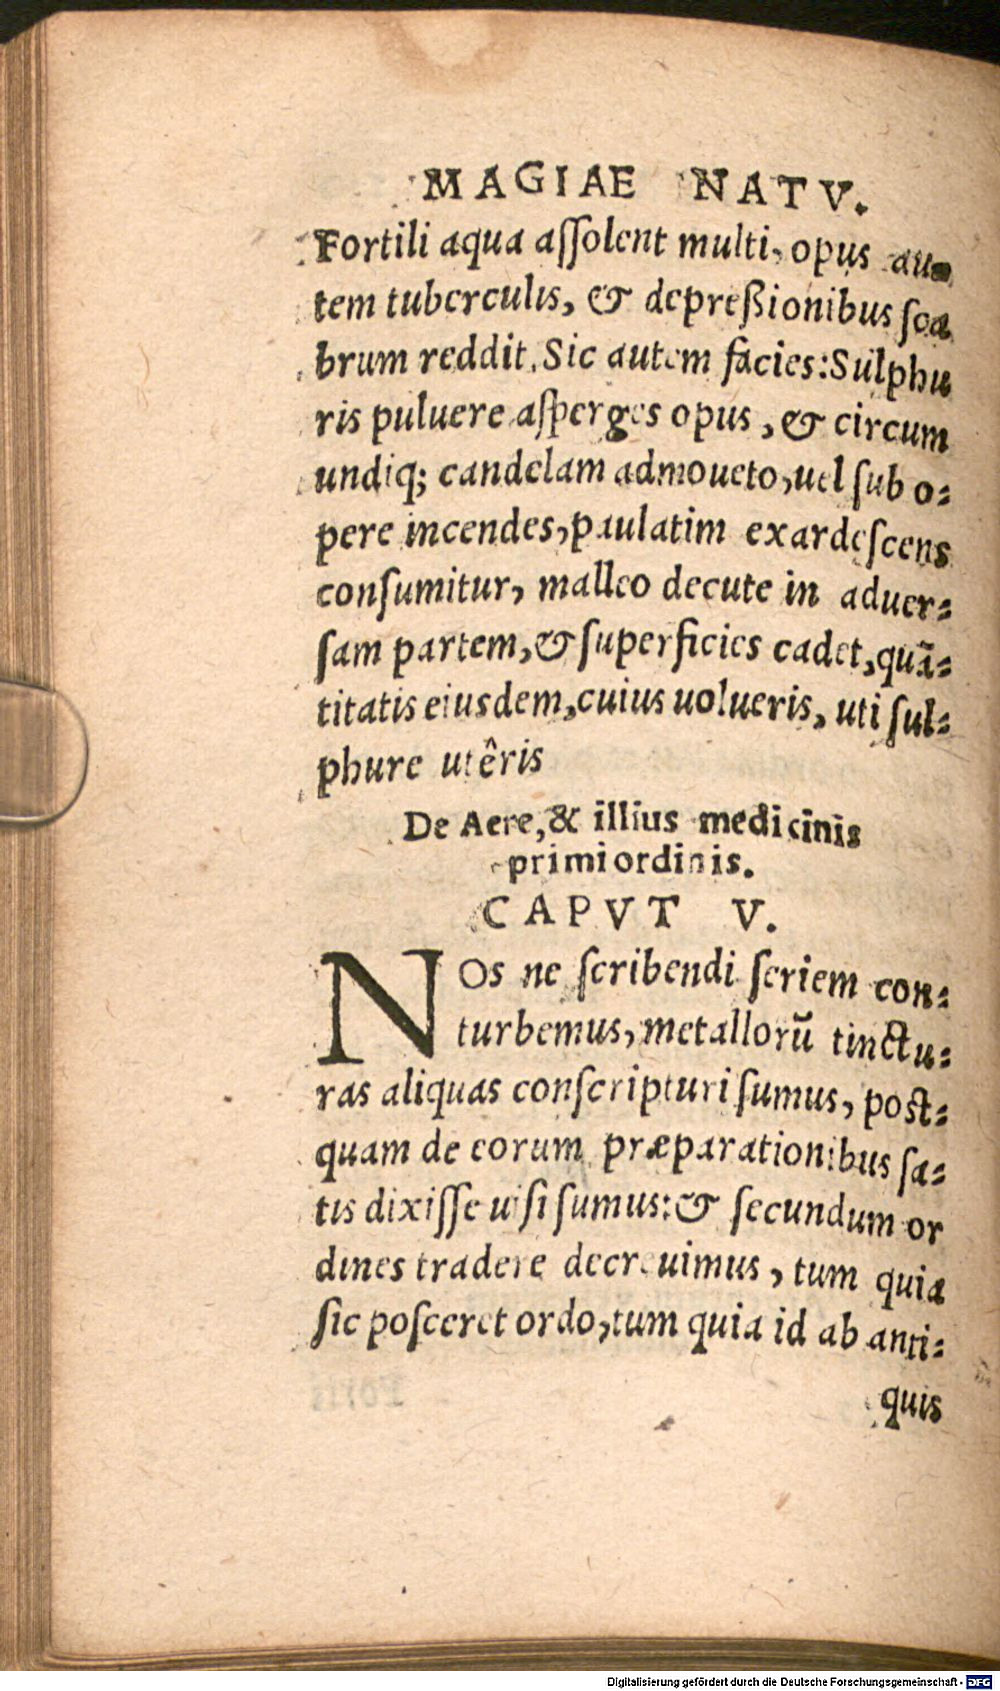 MAGIAE NATV.
Fortili aqua aſſolent multi, opus au-
tem tuberculis, & depreßionibus ſca
brum reddit. Sic autem facies: Sulphu
ris puluere aſperges opus, & circum
undiq; candelam admoueto, uel ſub o-
pere incendes, paulatim exardeſcens
conſumitur, malleo decute in aduer-
ſam partem, & ſuperficies cadet, quā-
titatis eiusdem, cuius uolueris, uti ſul-
phure utêris
De Aere, & illius medicinis
primi ordinis.
CAPVT V.
NOs ne ſcribendi ſeriem con-
turbemus, metallorū tinctu-
ras aliquas conſcripturi ſumus, poſt-
quam de eorum præparationibus ſa-
tis dixiſſe uiſi ſumus: & ſecundum or
dines tradere decreuimus, tum quia
ſic poſceret ordo, tum quia id ab anti-
quis
Digitalisierung gefördert durch die Deutsche Forschungsgemeinschaft - DFG